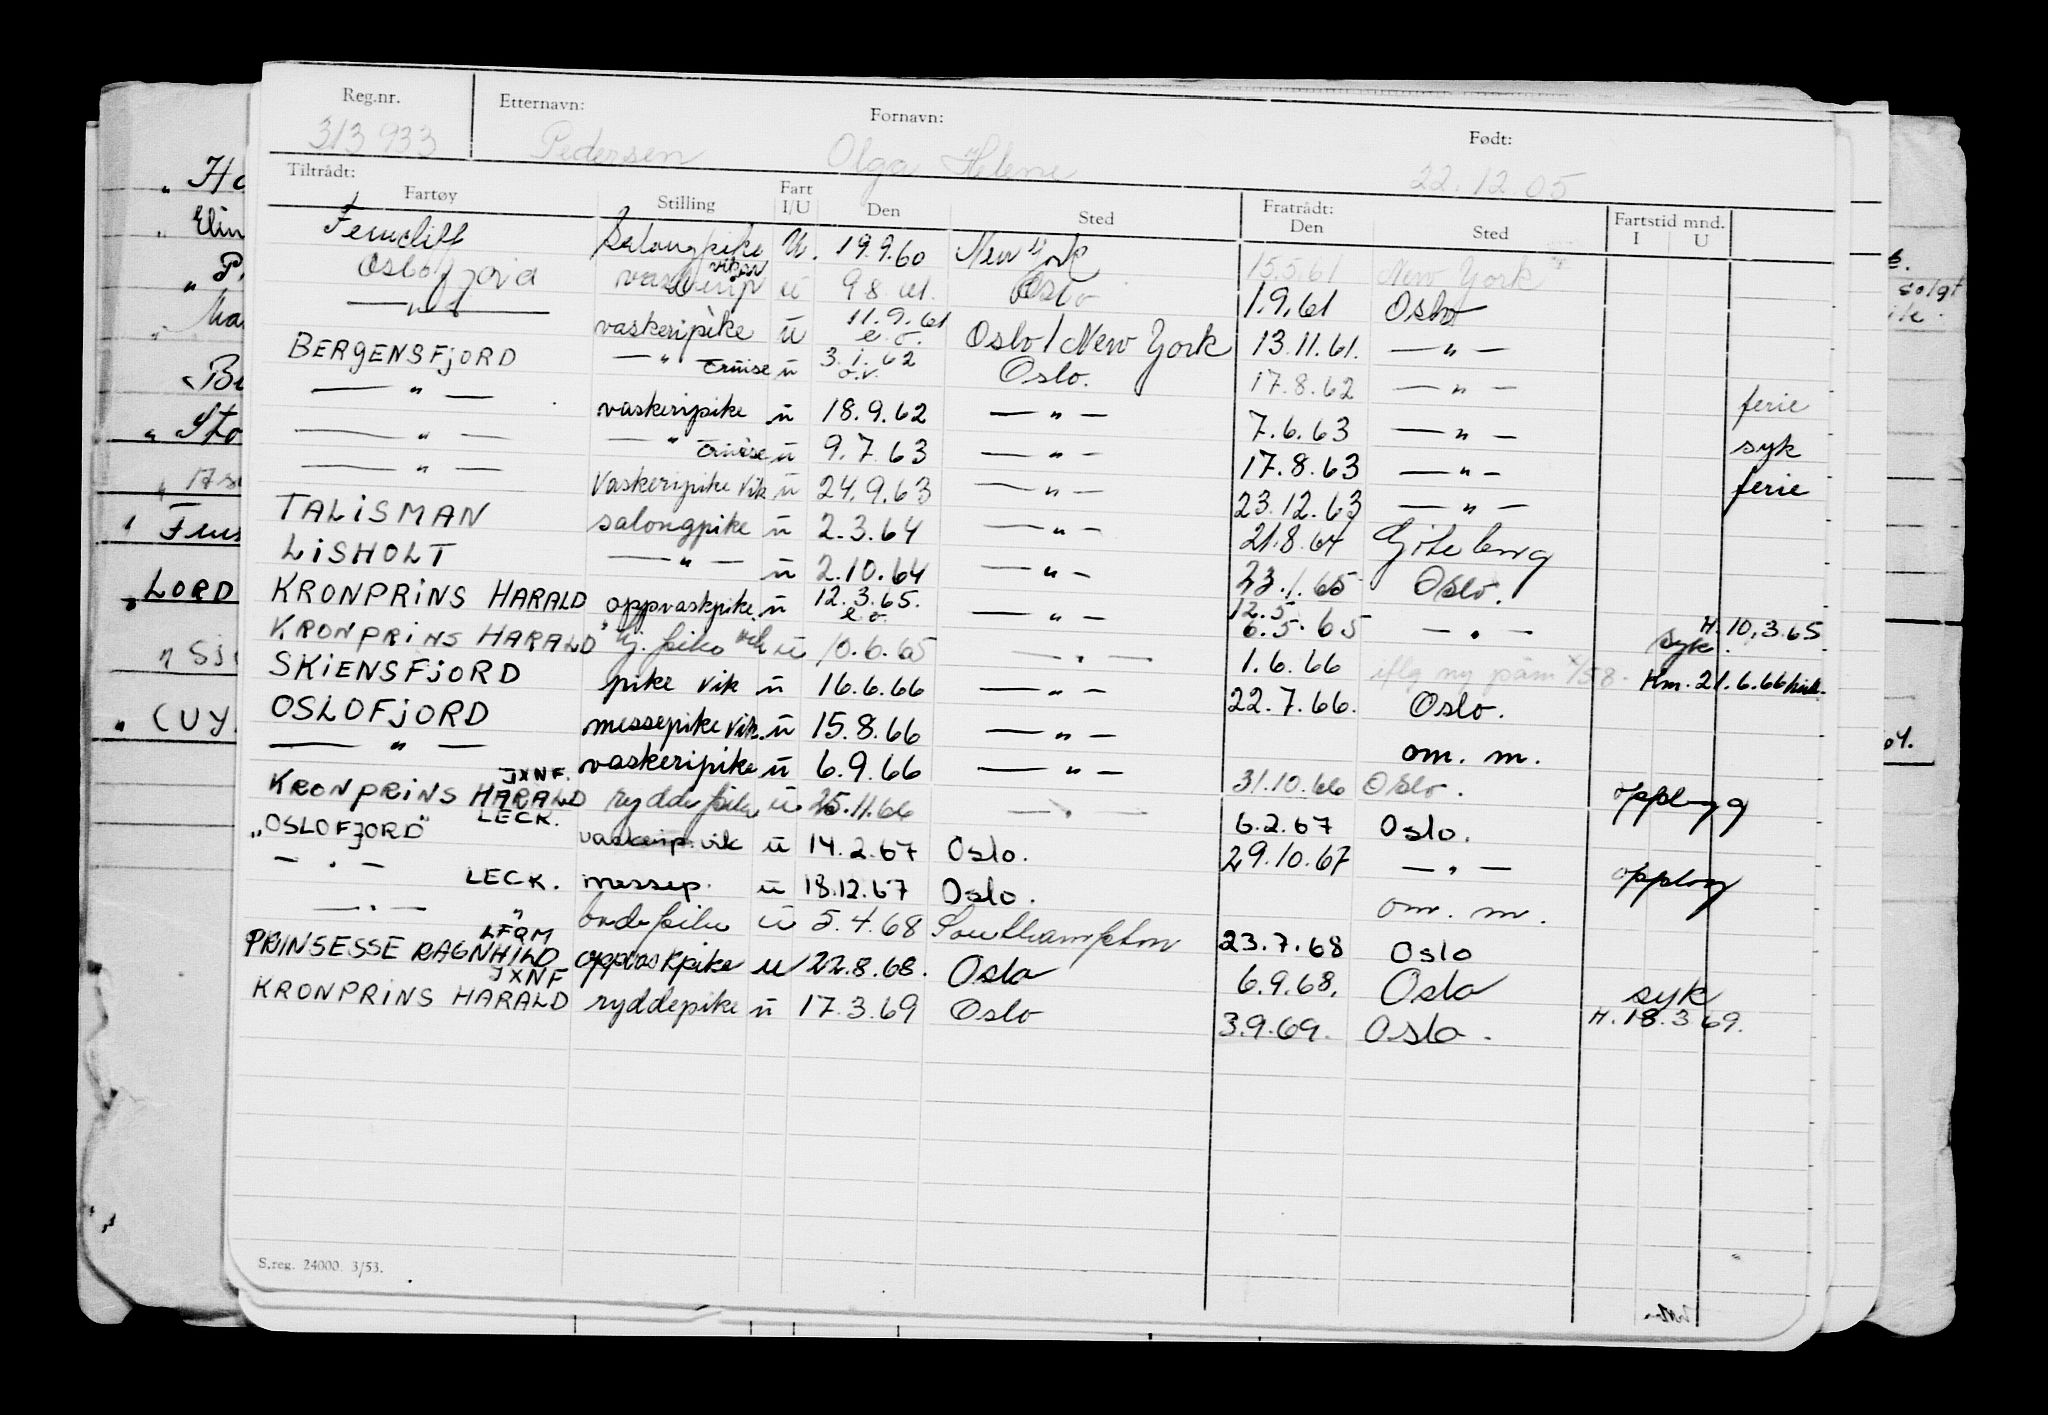 Reg.nr. Etternavn: Fornavn: Født:
313 933 Pedersen Olga Helene 22.12.05
Tiltrådt: Fratrådt: Fartstid mnd.
Fartøy Stilling Fart I/U Den Sted Den Sted I U
Ferncliff Salongpike U. 19.9.60 New York 15.5.61 New York
Oslofjord vaskerip vikar u 9.8.61. Oslo 1.9.61 Oslo
— " — vaskeripike u 11.9.61 e.o. Oslo/New York 13.11.61. — " —
BERGENSFJORD — " cruise u 3.1.62 o.v. Oslo. 17.8.62 — " — ferie
— " — vaskeripike u 18.9.62 — " — 7.6.63 — " — syk
— " — — " cruise u 9.7.63 — " — 17.8.63 — " — ferie
— " — Vaskeripike vik u 24.9.63 — " — 23.12.63 — " —
TALISMAN salongpike u 2.3.64 — " — 21.8.64 Göteborg
LISHOLT — " — u 2.10.64 — " — 23.1.65 Oslo.
KRONPRINS HARALD oppvaskpike u 12.3.65. e.o. — " — 12.5. 6.5.65 — " — H. 10.3.65
KRONPRINS HARALD pike vik u 10.6.65 — " — 1.6.66 iflg ny påm syk.
SKIENSFJORD pike vik u 16.6.66 — " — 22.7.66. Oslo. Hm. 21.6.66
OSLOFJORD messepike vik. u 15.8.66 — " — om. m.
— " — vaskeripike u 6.9.66 — " — 31.10.66 Oslo. opplagg
KRONPRINS HARALD JXNF. ryddepike u 25.11.66 — " — 6.2.67 Oslo.
"OSLOFJORD" LECK. vaskerip. vik u 14.2.67 Oslo. 29.10.67 — " — opplag
— " — LECK. messep. u 18.12.67 Oslo. om. m.
— " — " u 5.4.68 Southampton 23.7.68 Oslo
PRINSESSE RAGNHILD LFQM oppvaskpike u 22.8.68. Oslo 6.9.68. Oslo syk
KRONPRINS HARALD JXNF ryddepike u 17.3.69 Oslo 3.9.69. Oslo. H. 18.3.69.
S.reg. 24000. 3/53.
LORD
solgt